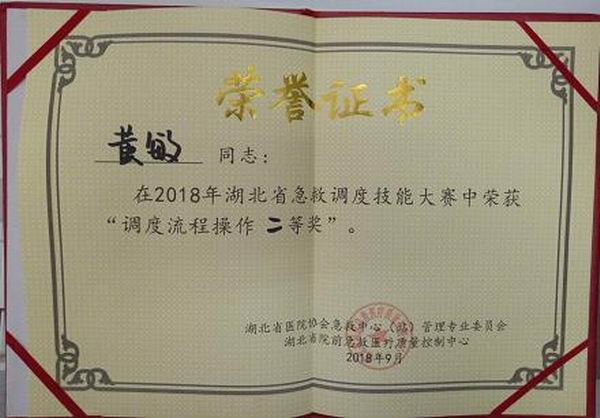 荣誉证书
黄敏 同志：
在2018年湖北省急救调度技能大赛中荣获
“调度流程操作 二等奖”。
湖北省医院协会急救中心（站）管理专业委员会
湖北省院前急救医疗质量控制中心
2018年9月